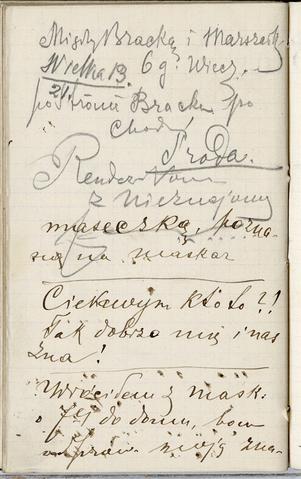 Między Bracką i Marszałk
Wielka 13. 6 g. Wiecz.
21. po stronie Brackiej po
chodzi
Środa.
Rendez-Vous
z Nieznajomą
maseczką, pozna-
ną na maskar
Ciekawym kto to?!
Tak dobrze mię i nas
zna!
Wróciłem z mask:
o 7ej do domu, bom
mojej zna-